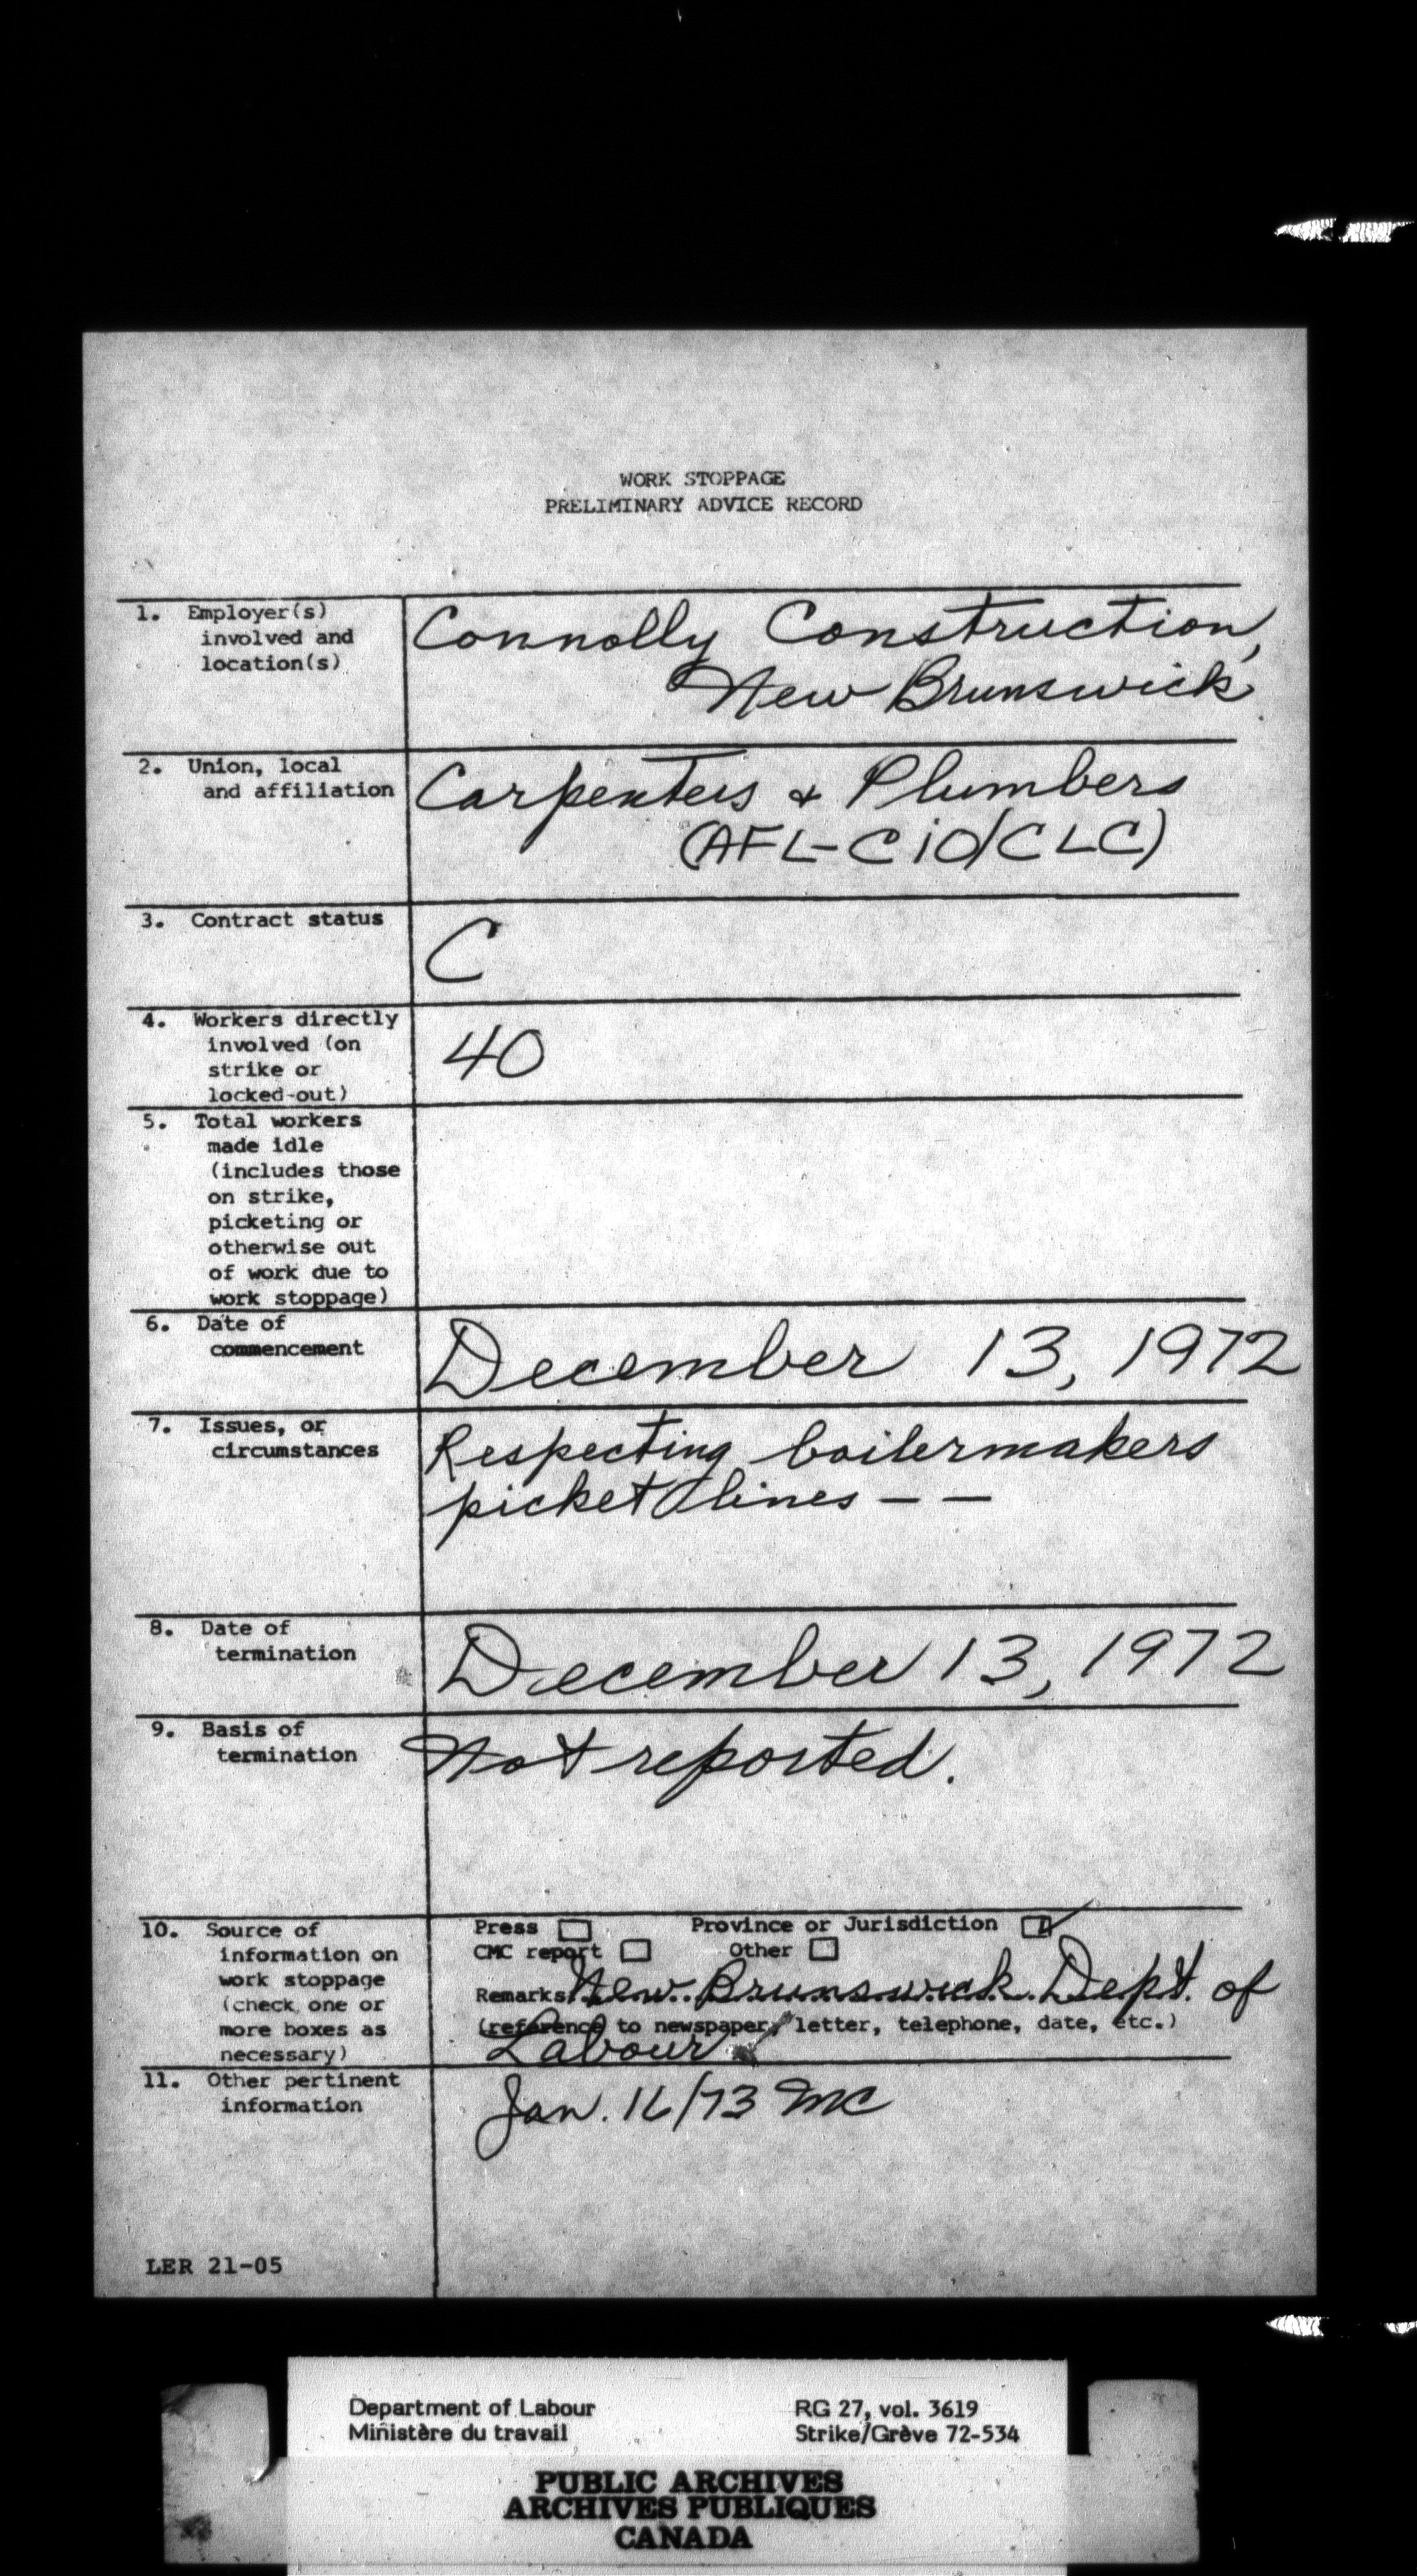 WORK STOPPAGE
PRELIMINARY ADVICE RECORD
1. Employer(s)
involved and
location(s)
Connolly Construction,
New Brunswick
2. Union, local
and affiliation
Carpenters + Plumbers
(AFL-CiO/CLC)
3. Contract status
C
4. Workers directly
involved (on
strike or
locked-out)
40
5. Total workers
made idle
(includes those
on strike,
picketing or
otherwise out
of work due to
work stoppage)
6. Date of
commencement
December 13, 1972
7. Issues, or
circumstances
Respecting boilermakers
picket lines - -
8. Date of
termination
December 13, 1972
9. Basis of
termination
Not reported.
10. Source of
information on
work stoppage
(check one or
more boxes as
necessary)
Press Province or Jurisdiction
CMC report Other
Remarks New Brunswick Dept. of
(reference to newspaper, letter, telephone, date, etc.)
Labour
11. Other pertinent
information
Jan. 16/73 MC
LER 21-05
Department of Labour RG 27, vol. 3619
Ministère du travail Strike/Grève 72-534
PUBLIC ARCHIVES
ARCHIVES PUBLIQUES
CANADA